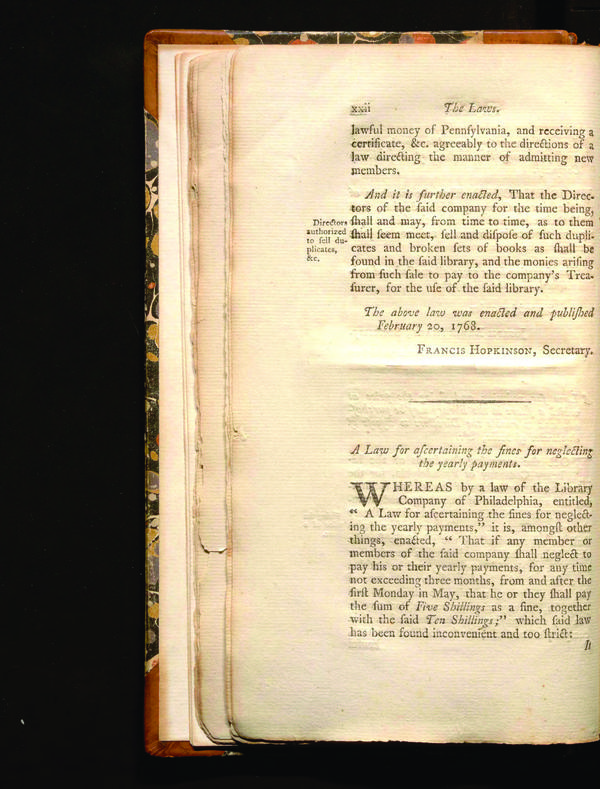 xxii The Laws.
lawful money of Pennſylvania, and receiving a
certificate, &c. agreeably to the directions of a
law directing the manner of admitting new
members.
And it is further enacted, That the Direc-
tors of the ſaid company for the time being,
ſhall and may, from time to time, as to them
ſhall ſeem meet, ſell and diſpoſe of ſuch dupli-
cates and broken ſets of books as ſhall be
found in the ſaid library, and the monies ariſing
from ſuch ſale to pay to the company's Trea-
ſurer, for the uſe of the ſaid library.
Directors
authorized
to ſell du-
plicates,
&c.
The above law was enacted and publiſhed
February 20, 1768.
FRANCIS HOPKINSON, Secretary.
A Law for aſcertaining the fines for neglecting
the yearly payments.
WHEREAS by a law of the Library
Company of Philadelphia, entitled,
“ A Law for aſcertaining the fines for neglect-
ing the yearly payments,” it is, amongſt other
things, enacted, “ That if any member or
members of the ſaid company ſhall neglect to
pay his or their yearly payments, for any time
not exceeding three months, from and after the
firſt Monday in May, that he or they ſhall pay
the ſum of Five Shillings as a fine, together
with the ſaid Ten Shillings;” which ſaid law
has been found inconvenient and too ſtrict:
It